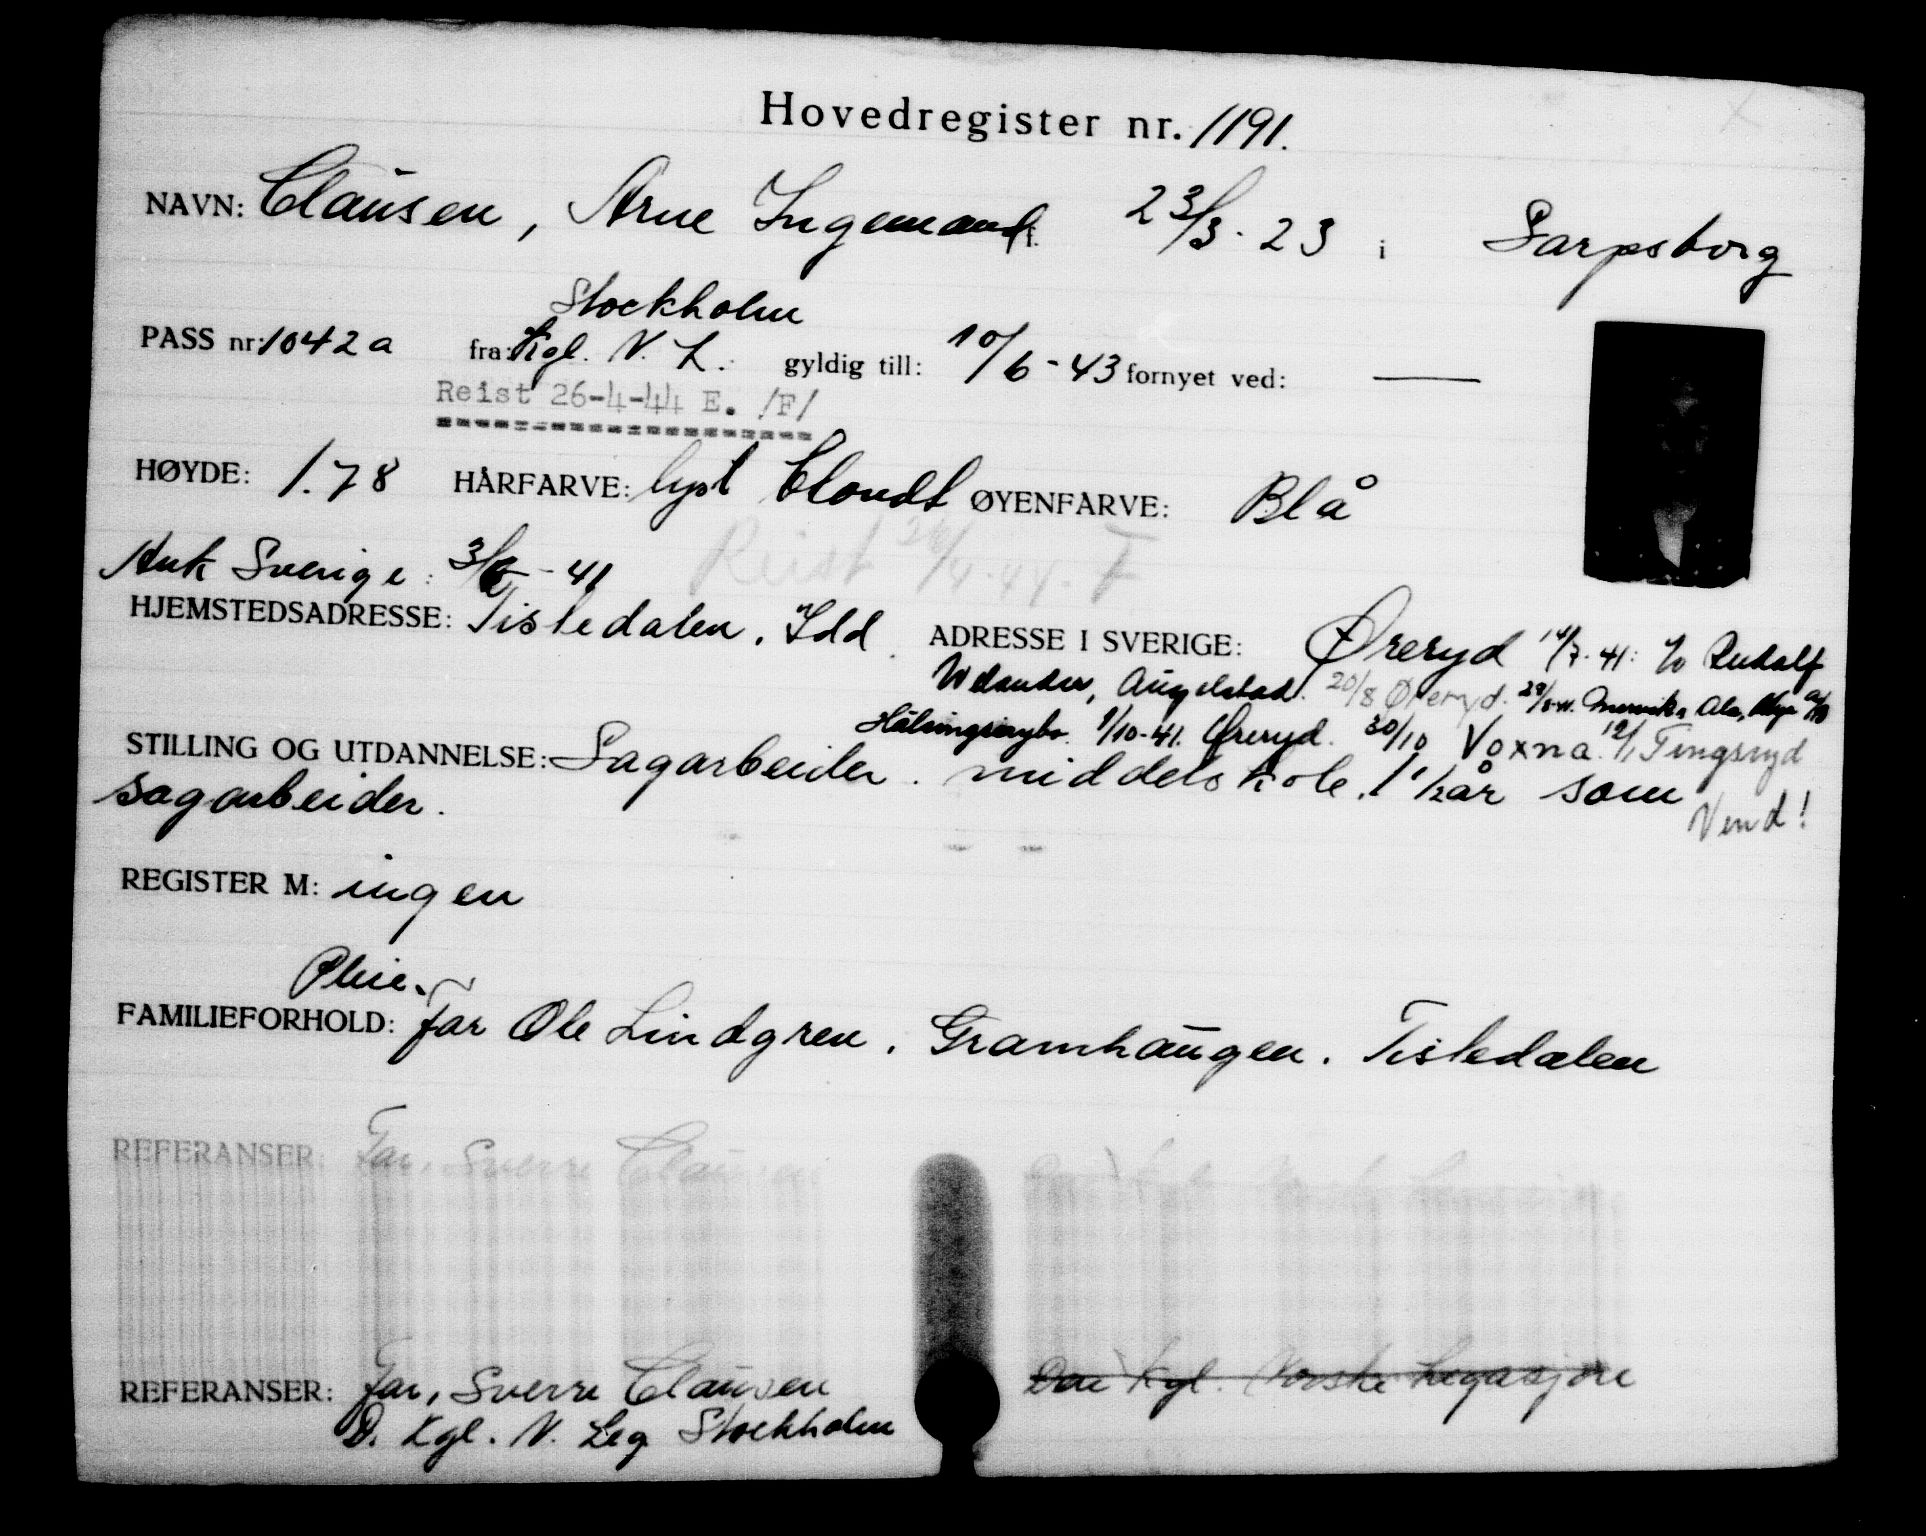 Hovedregister nr. 1191.
NAVN: Clausen, Arne Ingemand f. 23/3-23 i Sarpsborg
Stockholm
PASS nr: 1042a fra: Kgl. N. L. gyldig till: 10/6-43 fornyet ved: —
Reist 26-4-44 E. /F/
HØYDE: 1.78 HÅRFARVE: lyst blondt ØYENFARVE: Blå
Reist 26/4-44. F
Ank Sverige: 3/6-41
HJEMSTEDSADRESSE: Tistedalen, Idd. ADRESSE I SVERIGE: Øreryd 14/7-41: c/o Rudolf
Welander, Augelstad. 20/8 Øreryd.
1/10-41. Øreryd. 30/10 Voxna. 12/1 Tingsryd
STILLING OG UTDANNELSE: Sagarbeider. middelskole. 1 1/2 år som
sagarbeider.
Vend!
REGISTER M: ingen
Pleie.
FAMILIEFORHOLD: far Ole Lindgren. Gramhaugen. Tistedalen
REFERANSER: Far, Sverre Clausen
REFERANSER: far, Sverre Clausen Det Kgl. Norske Legasjon
D. Kgl. N. Leg Stockholm